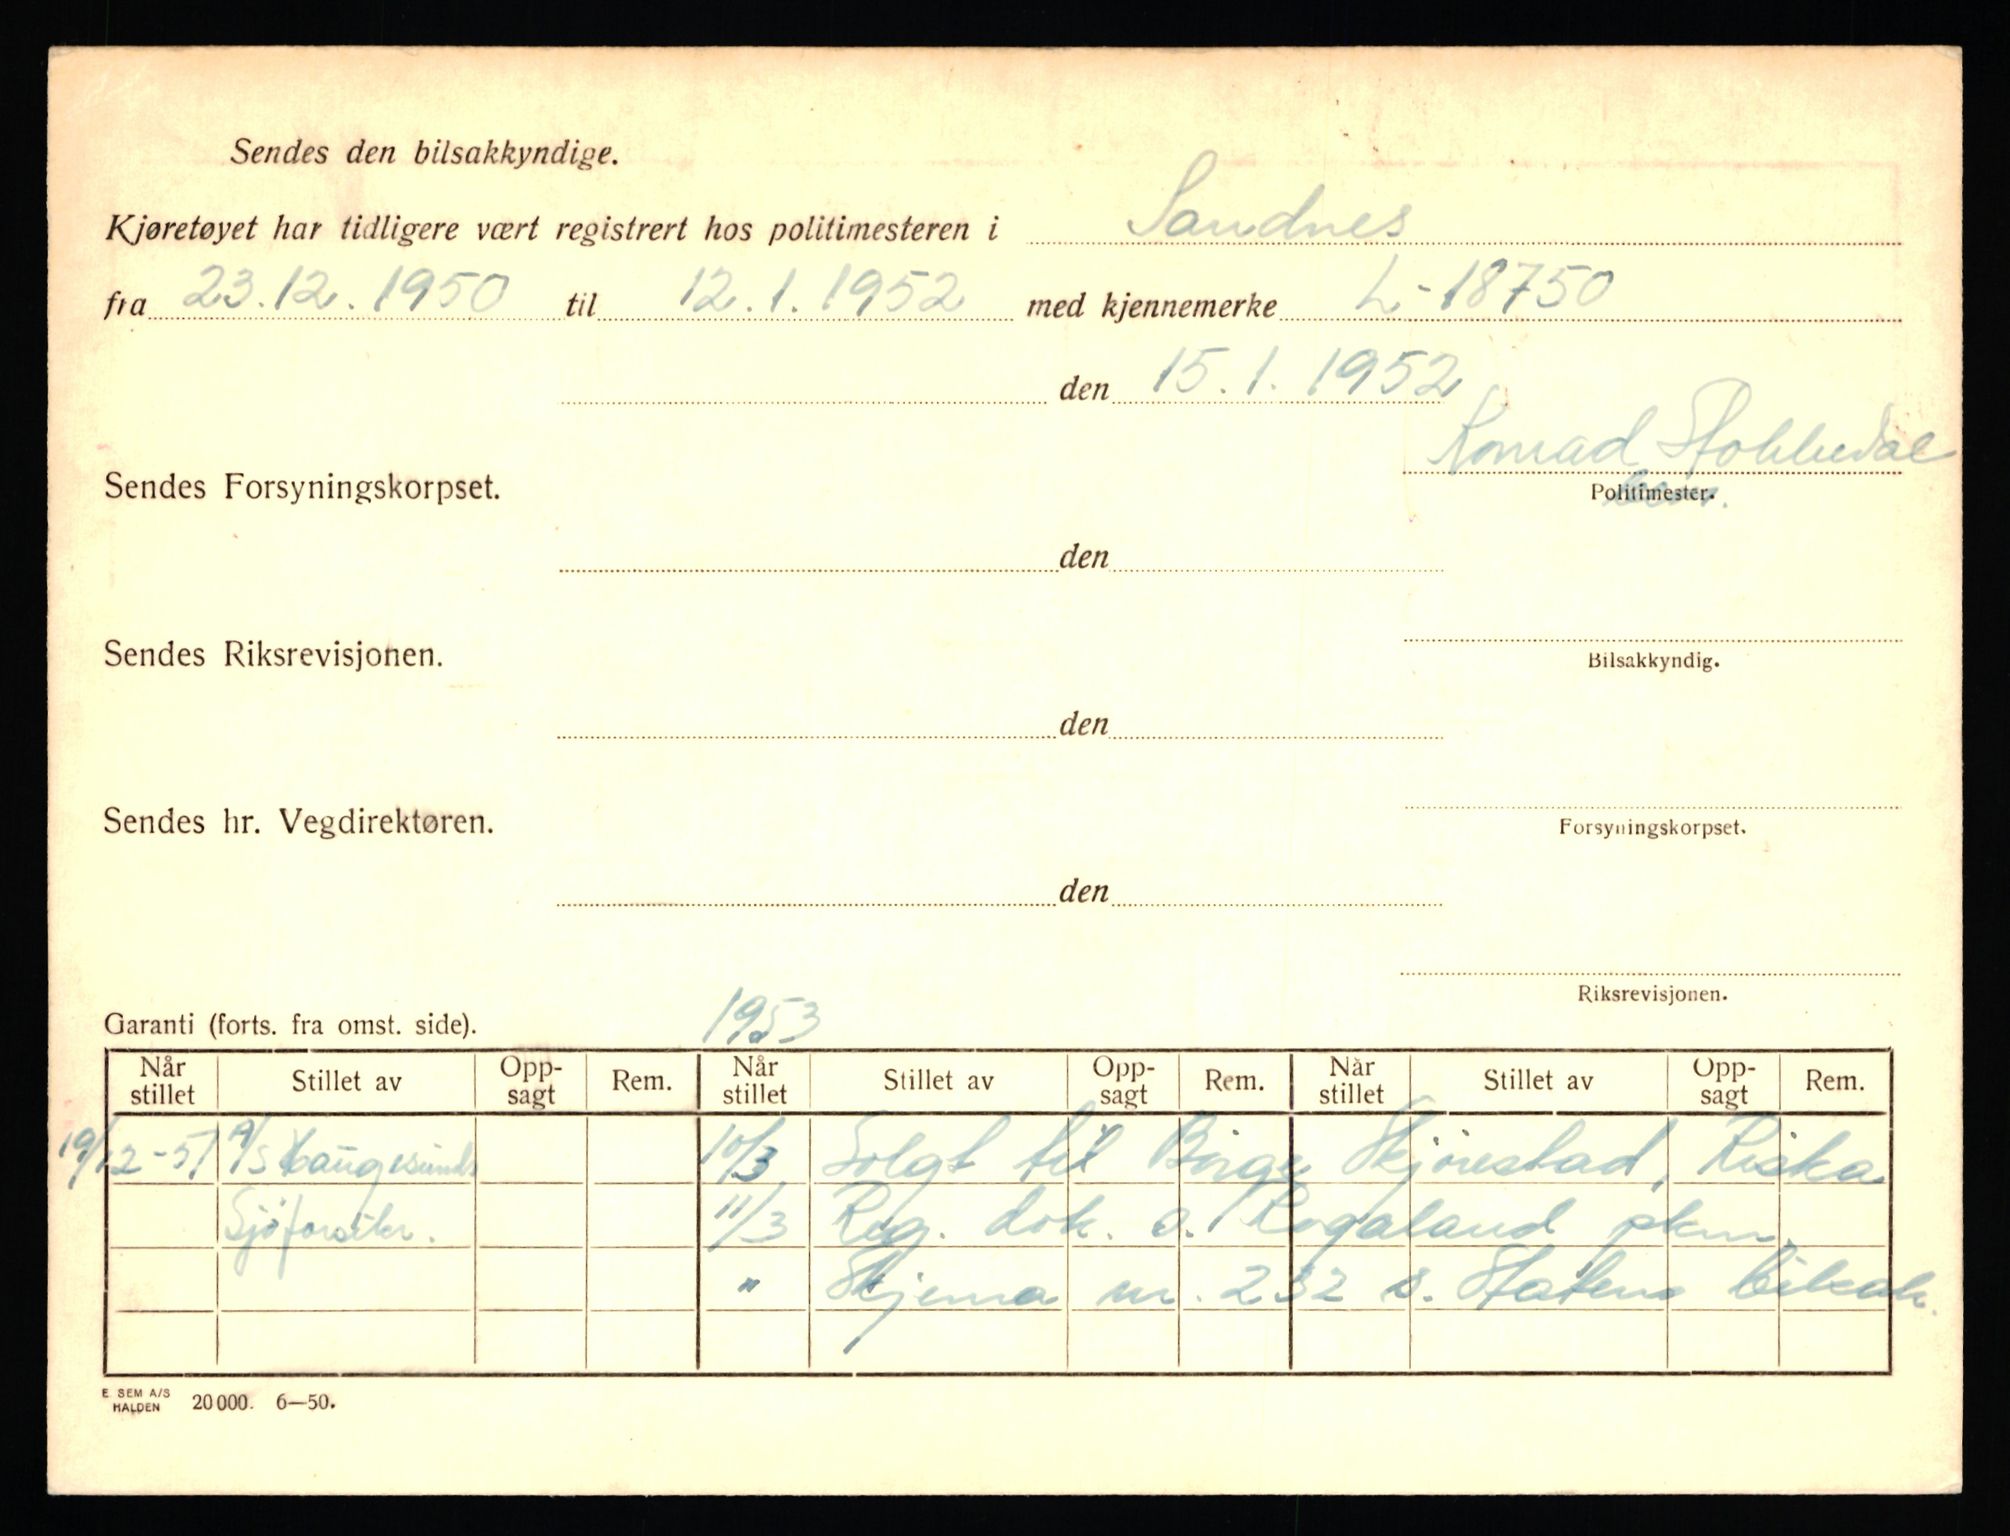 Sendes den bilsakkyndige.
Kjøretøyet har tidligere vært registrert hos politimesteren i Sandnes
fra 23.12.1950 til 12.1.1952 med kjennemerke L-18750
den 15.1.1952
Konrad
Sendes Forsyningskorpset.
Politimester.
den
Sendes Riksrevisjonen.
Bilsakkyndig.
den
Sendes hr. Vegdirektøren.
Forsyningskorpset.
den
Riksrevisjonen.
1953
Garanti (forts. fra omst. side).
Når stillet Stillet av Opp-sagt Rem. Når stillet Stillet av Opp-sagt Rem. Når stillet Stillet av Opp-sagt Rem.
19/12-51 A/S Haugesunds 10/3 Solgt til Børge Skjørestad, Riska
Sjøforsikr. 11/3 Reg. dok. s. Rogaland pkm.
" Skjema nr. 232 s. Statens bilsak.
E. SEM A/S
HALDEN 20 000. 6—50.